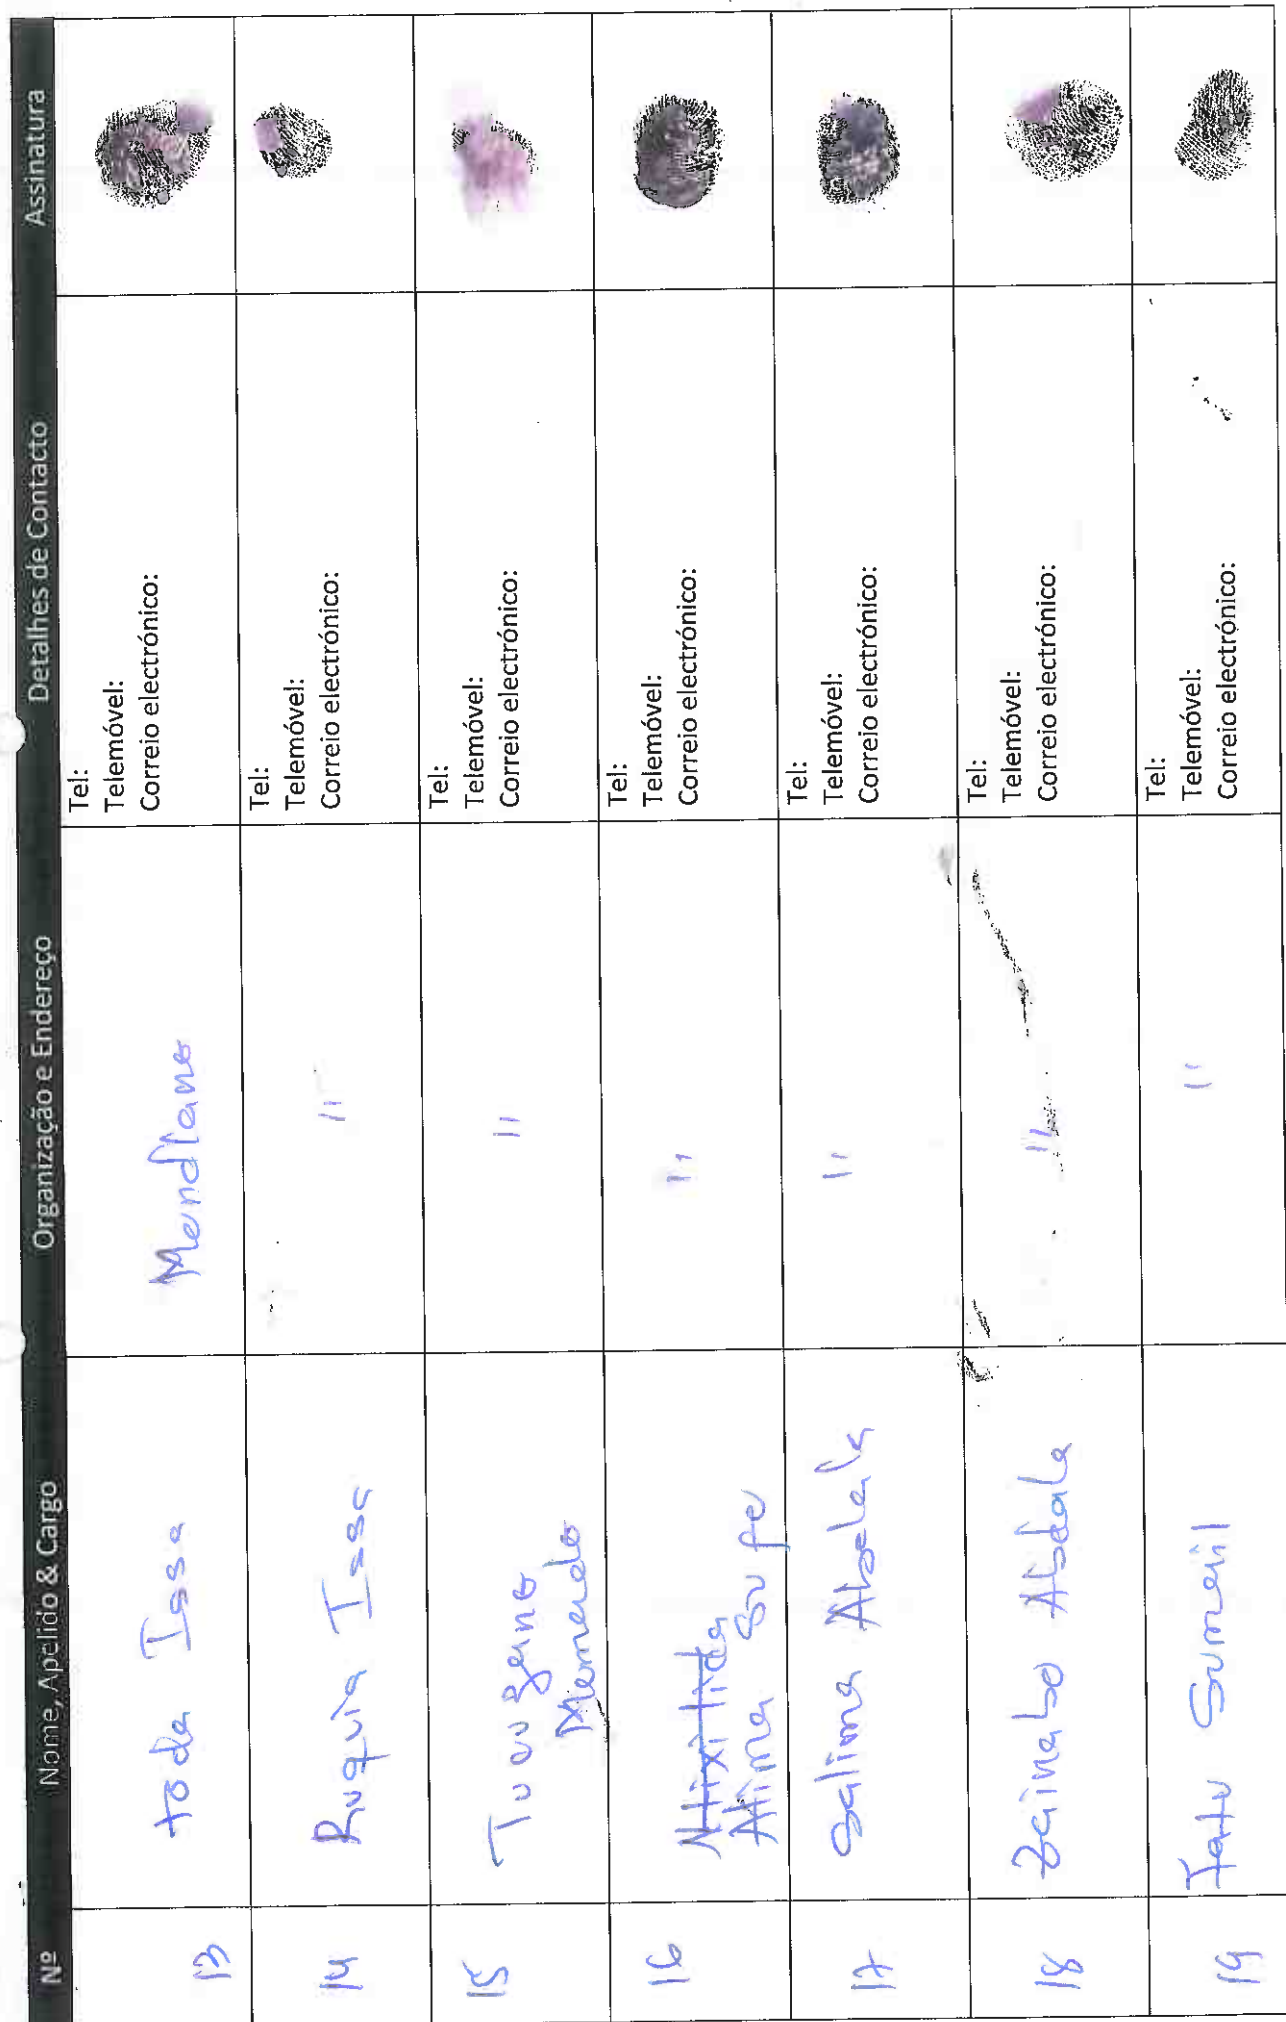 Nº Nome, Apelido & Cargo Organização e Endereço Detalhes de Contacto Assinatura
13 toda Issa Mendlano Tel:
Telemóvel:
Correio electrónico:
14 Ruquia Issa " Tel:
Telemóvel:
Correio electrónico:
15 " Tel:
Telemóvel:
Correio electrónico:
16 "
Atima Sufe Tel:
Telemóvel:
Correio electrónico:
17 Salima Abdala " Tel:
Telemóvel:
Correio electrónico:
18 Zainabo Abdala " Tel:
Telemóvel:
Correio electrónico:
19 Fatu Sumail " Tel:
Telemóvel:
Correio electrónico: